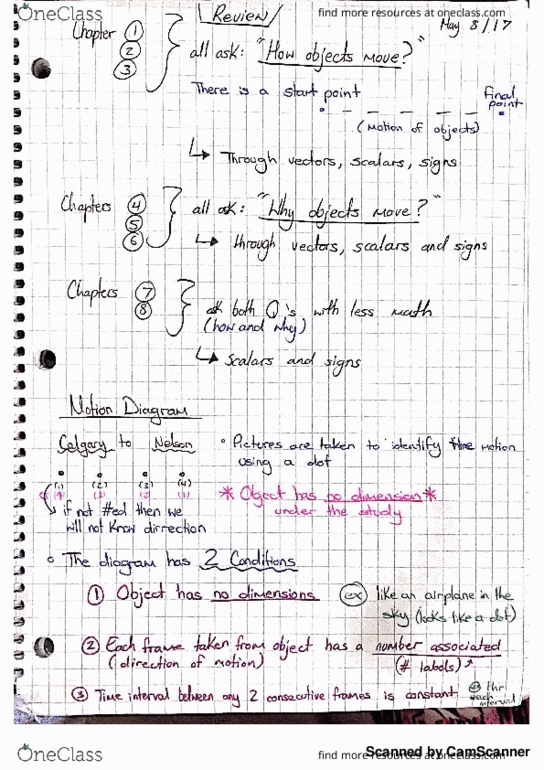 OneClass
find more resources at oneclass.com
Review
May 8/17
Chapter 1
2
3
all ask: "How objects move?"
There is a start point
final point
(motion of objects)
↳ Through vectors, scalars, signs
Chapters 4
5
6
all ask: "Why objects move?"
↳ through vectors, scalars and signs
Chapters 7
8
ask both Q's with less math
(how and why)
↳ Scalars and signs
Motion Diagram
Calgary to Nelson
• Pictures are taken to identify the motion
using a dot
(1) (2) (3) (4)
(4) (3) (2) (1)
* Object has no dimension *
under the study
↳ if not #ed then we
will not know dirrection
• The diagram has 2 Conditions
① Object has no dimensions
ex like an airplane in the
sky (looks like a dot)
② Each frame taken from object has a number associated
(direction of motion)
(# labels)
③ Time interval between any 2 consecutive frames is constant
1hr
each
interval
OneClass
find more resources at oneclass.com
Scanned by CamScanner